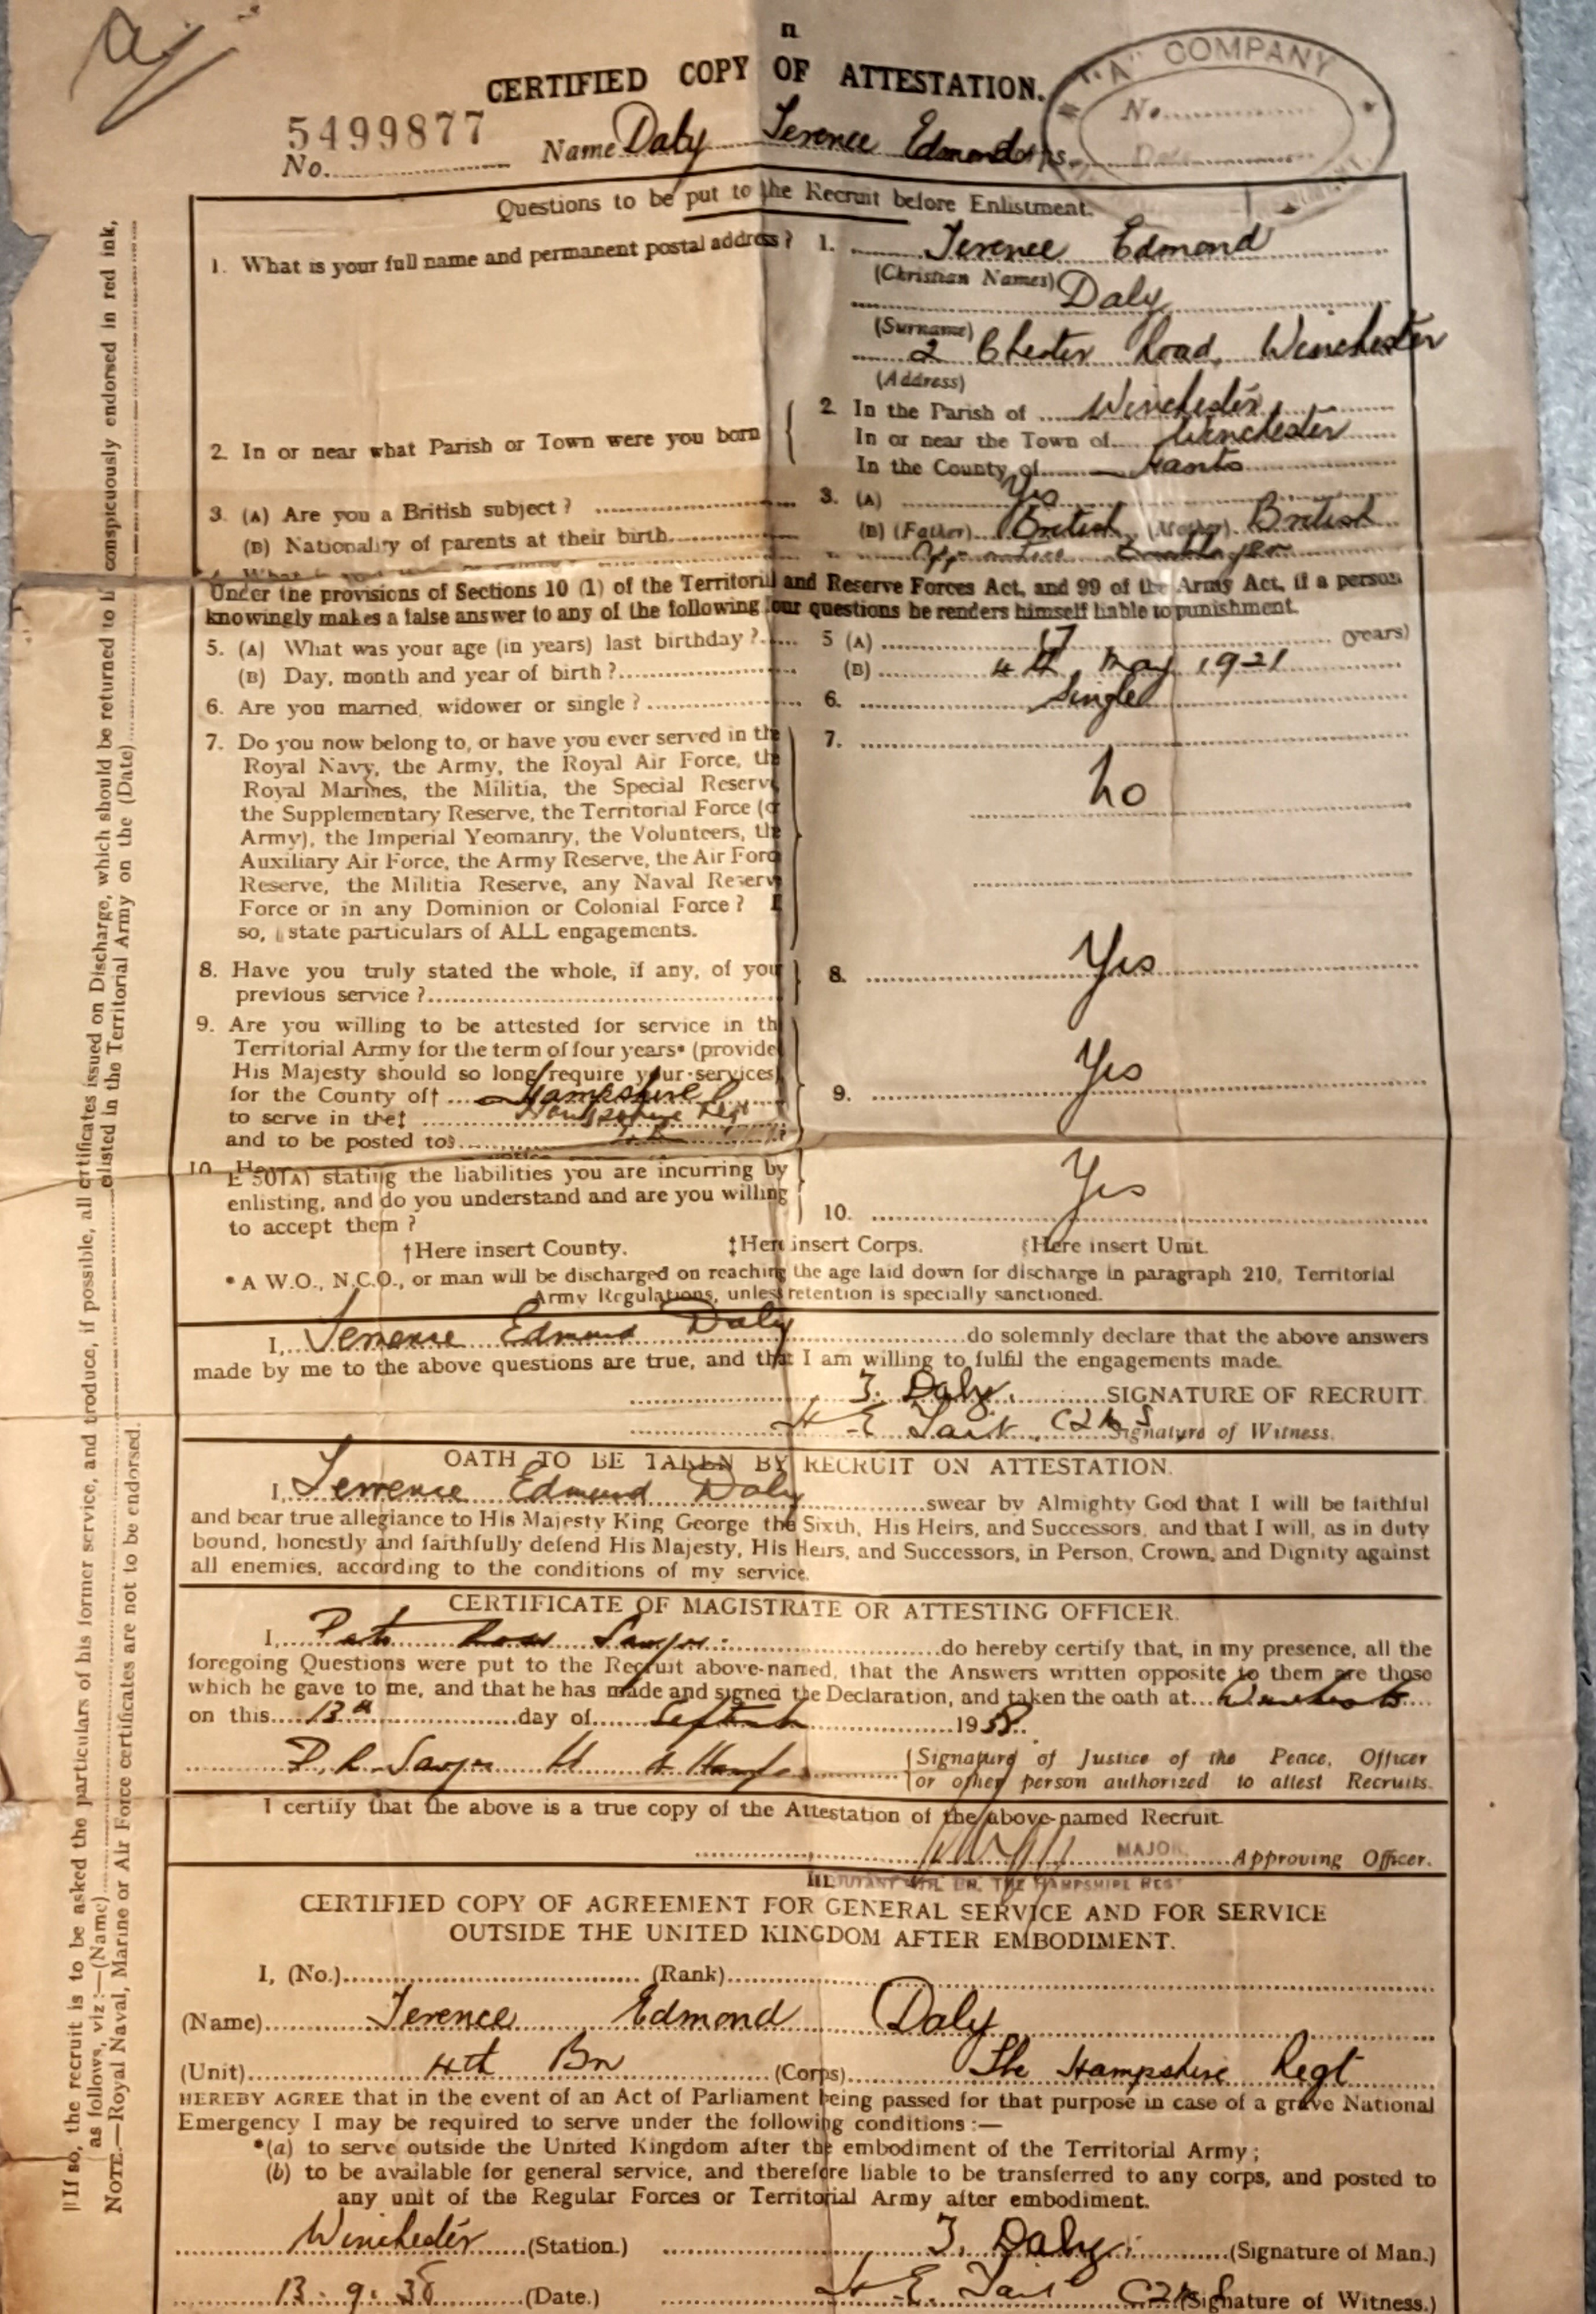 CERTIFIED COPY OF ATTESTATION.
"A" COMPANY
No.
Date
5499877
No. Name Daly Terence Edmond Corps.
Questions to be put to the Recruit before Enlistment.
1. What is your full name and permanent postal address? 1. Terence Edmond
(Christian Names)
Daly
(Surname)
2 Chester Road, Winchester
(Address)
2. In or near what Parish or Town were you born
2. In the Parish of Winchester
In or near the Town of Winchester
In the County of Hants
3. (A) Are you a British subject? 3. (A) Yes
(B) Nationality of parents at their birth (B) (Father) British (Mother) British
Under the provisions of Sections 10 (1) of the Territorial and Reserve Forces Act, and 99 of the Army Act, if a person
knowingly makes a false answer to any of the following four questions he renders himself liable to punishment.
5. (A) What was your age (in years) last birthday? 5 (A) 17 (years)
(B) Day, month and year of birth? (B) 4th May 1921
6. Are you married, widower or single? 6. Single
7. Do you now belong to, or have you ever served in the 7.
Royal Navy, the Army, the Royal Air Force, the
Royal Marines, the Militia, the Special Reserve No
the Supplementary Reserve, the Territorial Force (or
Army), the Imperial Yeomanry, the Volunteers, the
Auxiliary Air Force, the Army Reserve, the Air Force
Reserve, the Militia Reserve, any Naval Reserve
Force or in any Dominion or Colonial Force? If
so, state particulars of ALL engagements.
8. Have you truly stated the whole, if any, of your 8. Yes
previous service?
9. Are you willing to be attested for service in the
Territorial Army for the term of four years* (provided
His Majesty should so long require your services
for the County of† Hampshire 9. Yes
to serve in the‡ Hampshire Regt
and to be posted to§
10.
E 501A) stating the liabilities you are incurring by
enlisting, and do you understand and are you willing
to accept them? 10. Yes
†Here insert County. ‡Here insert Corps. §Here insert Unit.
*A W.O., N.C.O., or man will be discharged on reaching the age laid down for discharge in paragraph 210, Territorial
Army Regulations, unless retention is specially sanctioned.
I, Terrence Edmund Daly do solemnly declare that the above answers
made by me to the above questions are true, and that I am willing to fulfil the engagements made.
T. Daly. SIGNATURE OF RECRUIT.
E Tait Signature of Witness.
OATH TO BE TAKEN BY RECRUIT ON ATTESTATION.
I, Terrence Edmund Daly swear by Almighty God that I will be faithful
and bear true allegiance to His Majesty King George the Sixth, His Heirs, and Successors, and that I will, as in duty
bound, honestly and faithfully defend His Majesty, His Heirs, and Successors, in Person, Crown, and Dignity against
all enemies, according to the conditions of my service.
CERTIFICATE OF MAGISTRATE OR ATTESTING OFFICER.
I, do hereby certify that, in my presence, all the
foregoing Questions were put to the Recruit above-named, that the Answers written opposite to them are those
which he gave to me, and that he has made and signed the Declaration, and taken the oath at Winchester
on this 13th day of September 1938.
Signature of Justice of the Peace, Officer
or other person authorized to attest Recruits.
I certify that the above is a true copy of the Attestation of the above-named Recruit.
MAJOR, Approving Officer.
ADJUTANT 4TH. BN. THE HAMPSHIRE REGT
CERTIFIED COPY OF AGREEMENT FOR GENERAL SERVICE AND FOR SERVICE
OUTSIDE THE UNITED KINGDOM AFTER EMBODIMENT.
I, (No.) (Rank)
(Name) Terence Edmond Daly
(Unit) 4th Bn (Corps) The Hampshire Regt
HEREBY AGREE that in the event of an Act of Parliament being passed for that purpose in case of a grave National
Emergency I may be required to serve under the following conditions:—
*(a) to serve outside the United Kingdom after the embodiment of the Territorial Army;
(b) to be available for general service, and therefore liable to be transferred to any corps, and posted to
any unit of the Regular Forces or Territorial Army after embodiment.
Winchester (Station.) T. Daly. (Signature of Man.)
13.9.38 (Date.) E. Tait (Signature of Witness.)
||If so, the recruit is to be asked the particulars of his former service, and produce, if possible, all certificates issued on Discharge, which should be returned to conspicuously endorsed in red ink,
as follows, viz:—(Name) enlisted in the Territorial Army on the (Date)
NOTE.—Royal Naval, Marine or Air Force certificates are not to be endorsed.